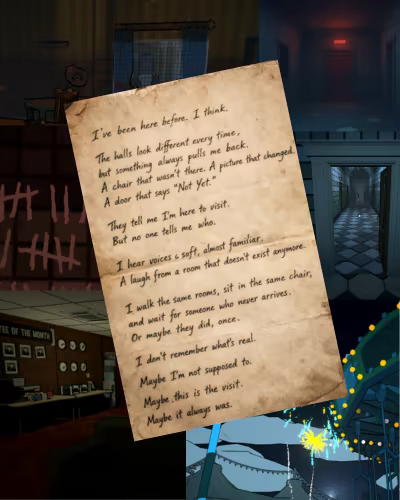 I've been here before. I think.
The halls look different every time,
but something always pulls me back.
A chair that wasn't there. A picture that changed.
A door that says "Not Yet."
They tell me I'm here to visit.
But no one tells me who.
I hear voices soft, almost familiar.
A laugh from a room that doesn't exist anymore.
I walk the same rooms, sit in the same chair,
and wait for someone who never arrives.
Or maybe they did, once.
I don't remember what's real.
Maybe I'm not supposed to.
Maybe this is the visit.
Maybe it always was.
OF THE MONTH